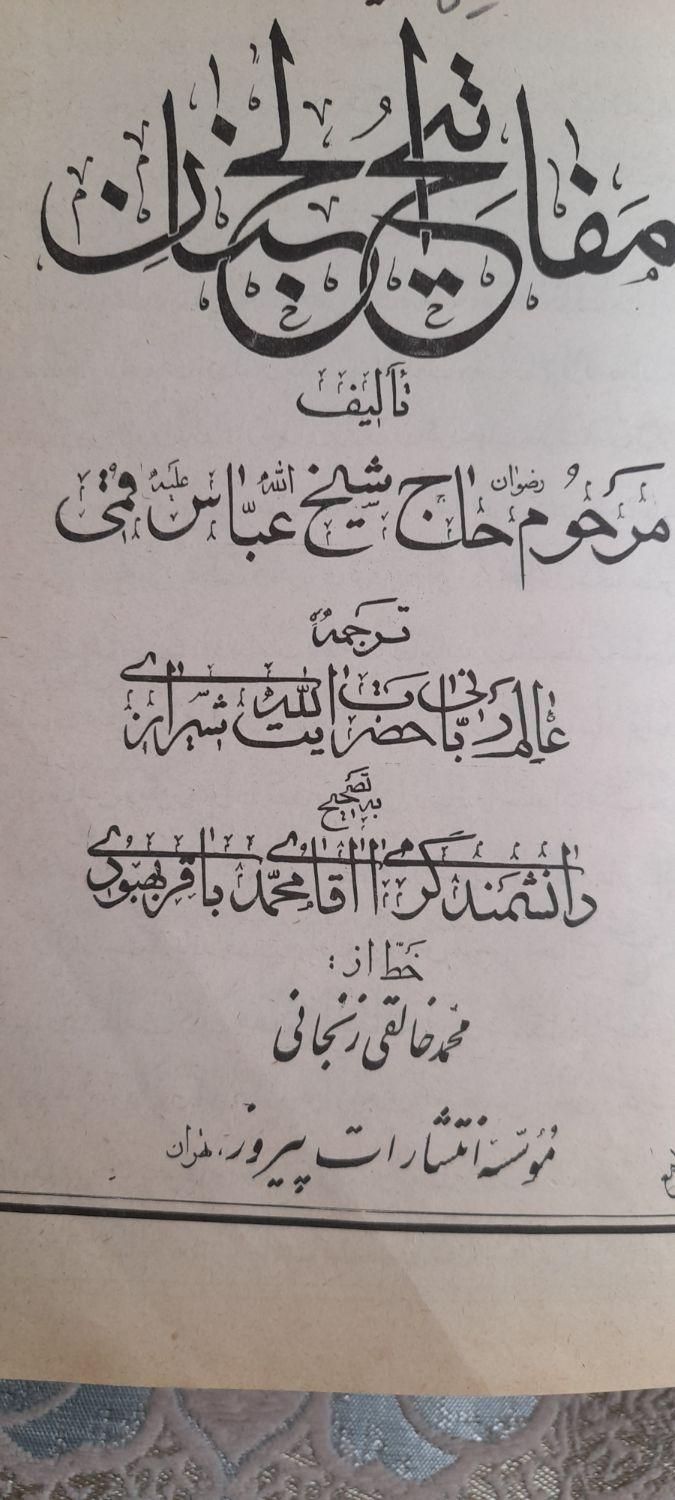 مفاتیح الجنان
تألیف
مرحوم حاج شیخ عباس قمی رضوان الله علیه
ترجمه
عالم ربانی حضرت آیت الله شیرازی
به تصحیح
دانشمند گرامی آقای محمد باقر بهبودی
خط از:
محمد خالقی زنجانی
مؤسسه انتشارات پیروز، تهران